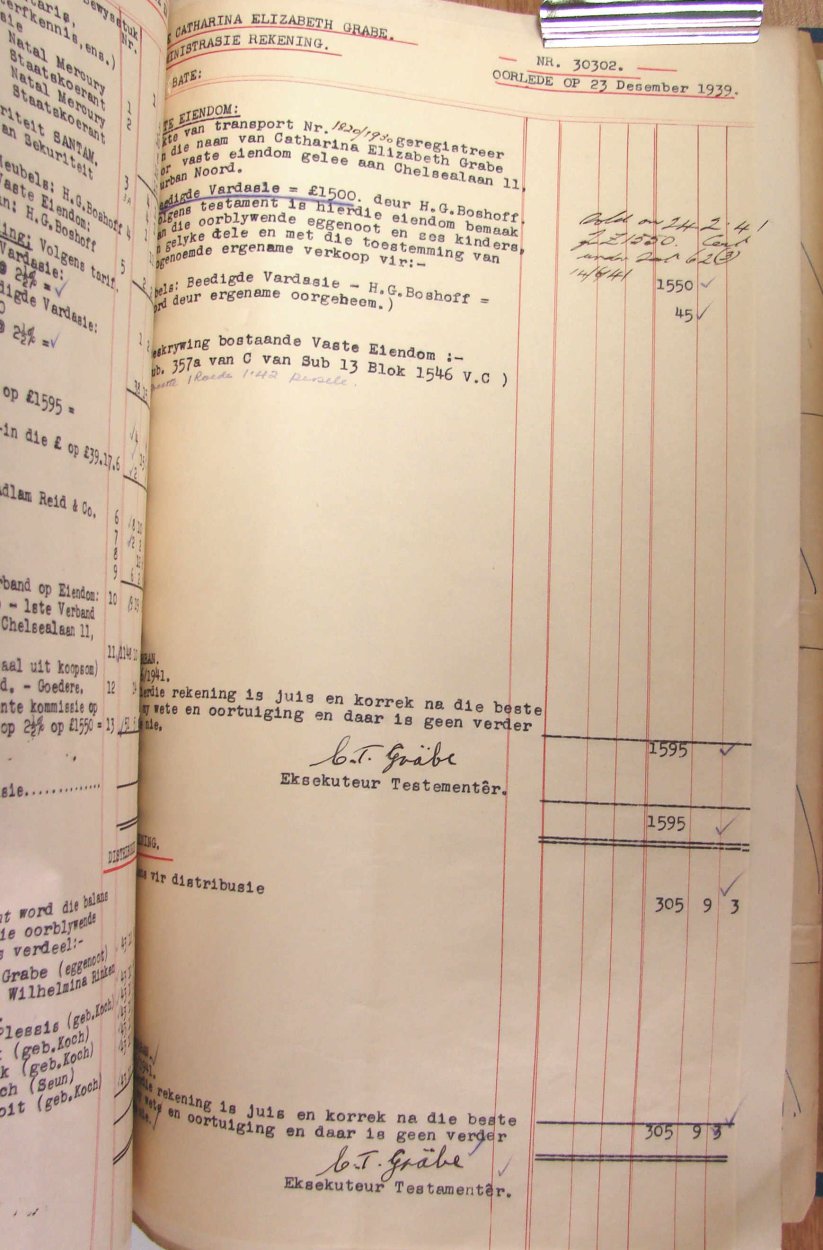 bewysstuk
Nr.
erfkennis, ens.)
sie
Natal Mercury 1
Staatskoerant 2
Natal Mercury
Staatskoerant
riteit SANTAM.
an Sekuriteit 3
Meubels: H.G.Boshoff 4
Vaste Eiendom:
an: H.G.Boshoff
ing; Volgens tarif. 5
Vardasie:
@ 2½%
digde Vardasie:
@ 2½% =
op £1595 =
-in die £ op £39.17.6
dlam Reid & Co. 6
7
8
9
rband op Eiendom: 10
- 1ste Verband
Chelsealaan 11,
11
aal uit koopsom)
d. - Goedere, 12
nte kommissie op
op 2½% op £1550 = 13
sie..............
DISTRIBU
nt word die balans
ie oorblywende
s verdeel:-
Grabe (eggenoot)
Wilhelmina
Plessis (geb.Koch)
(geb.Koch)
k (geb.Koch)
ch (Seun)
oit (geb.Koch)
CATHARINA ELIZABETH GRABE.
MINISTRASIE REKENING.
NR. 30302.
OORLEDE OP 23 Desember 1939.
BATE:
TE EIENDOM:
kte van transport Nr. 1820/1930 geregistreer
n die naam van Catharina Elizabeth Grabe
or vaste eiendom gelee aan Chelsealaan 11,
urban Noord.
eedigde Vardasie = £1500. deur H.G.Boshoff.
olgens testament is hierdie eiendom bemaak
an die oorblywende eggenoot en ses kinders,
n gelyke dele en met die toestemming van
ogenoemde ergename verkoop vir:-
Sold on 24·2·41
£1550. Cert
under Sect 62(3)
14/6/41
1550 ✓
bels: Beedigde Vardasie - H.G.Boshoff =
ord deur ergename oorgeheem.)
45 ✓
eskrywing bostaande Vaste Eiendom :-
ub. 357a van C van Sub 13 Blok 1546 V.C )
1 Roede 1·42 Persele.
BAN.
/1941.
ierdie rekening is juis en korrek na die beste
my wete en oortuiging en daar is geen verder
nie.
1595 ✓
C.T. Gräbe
Eksekuteur Testementêr.
1595 ✓
ENING.
ns vir distribusie
305 9 3
rekening is juis en korrek na die beste
wete en oortuiging en daar is geen verder
305 9 3
C.T. Gräbe
Eksekuteur Testamentêr.